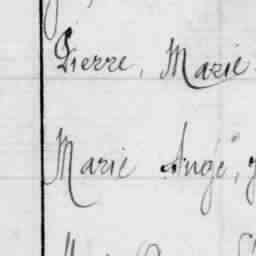 Pierre, Marie
Marie Ange,